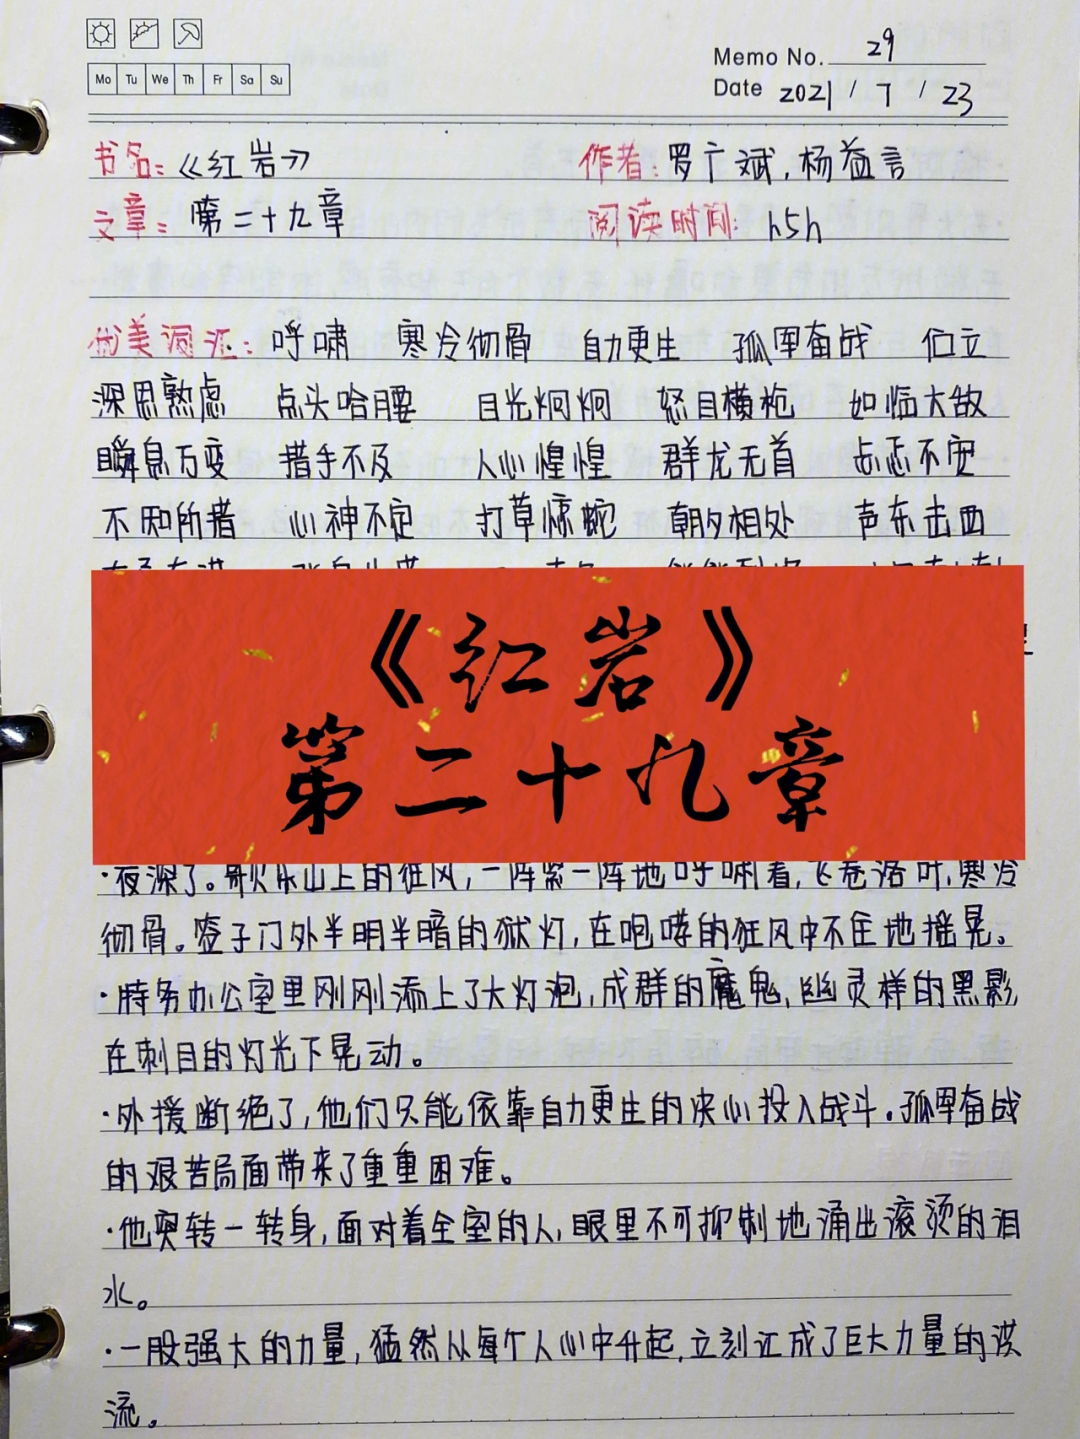 Memo No. 29
Mo Tu We Th Fr Sa Su
Date 2021 / 7 / 23
书名:《红岩》 作者:罗广斌,杨益言
文章:第二十九章 阅读时间: h5h
优美词汇:呼啸 寒冷彻骨 自力更生 孤军奋战 伫立
深思熟虑 点头哈腰 目光炯炯 怒目横枪 如临大敌
瞬息万变 措手不及 人心惶惶 群龙无首 忐忑不定
不知所措 心神不定 打草惊蛇 朝夕相处 声东击西
《红岩》
第二十九章
·夜深了。歌乐山上的狂风,一阵紧一阵地呼啸着,飞卷落叶,寒冷
彻骨。签子门外半明半暗的狱灯,在咆哮的狂风中不住地摇晃。
·特务办公室里刚刚添上了大灯泡,成群的魔鬼,幽灵样的黑影,
在刺目的灯光下晃动。
·外援断绝了,他们只能依靠自力更生的决心投入战斗.孤军奋战
的艰苦局面带来了重重困难。
·他突转一转身,面对着全室的人,眼里不可抑制地涌出滚烫的泪
水。
·一股强大的力量,猛然从每个人心中升起,立刻汇成了巨大力量的洪
流。